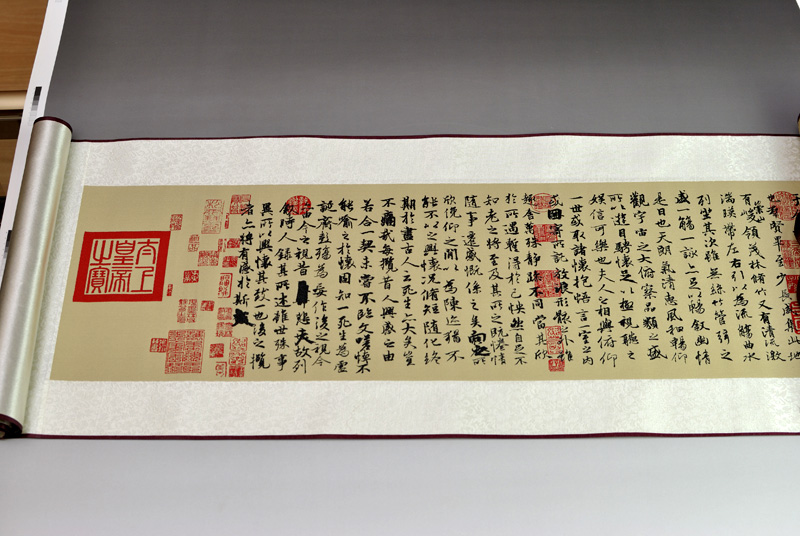 群賢畢至少長咸集此地
有崇山峻領茂林脩竹又有清流激
湍暎帶左右引以為流觴曲水
列坐其次雖無絲竹管弦之
盛一觴一詠亦足以暢敘幽情
是日也天朗氣清惠風和暢仰
觀宇宙之大俯察品類之盛
所以遊目騁懷足以極視聽之
娛信可樂也夫人之相與俯仰
一世或取諸懷抱悟言一室之內
或因寄所託放浪形骸之外雖
趣舍萬殊靜躁不同當其欣
於所遇暫得於己怏然自足不
知老之將至及其所之既惓情
隨事遷感慨係之矣向之所
欣俛仰之間以為陳迹猶不
能不以之興懷況脩短隨化終
期於盡古人云死生亦大矣豈
不痛哉每攬昔人興感之由
若合一契未嘗不臨文嗟悼不
能喻之於懷固知一死生為虛
誕齊彭殤為妄作後之視今
亦由今之視昔悲夫故列
敘時人錄其所述雖世殊事
異所以興懷其致一也後之攬
者亦將有感於斯文
太上
皇帝
之寶